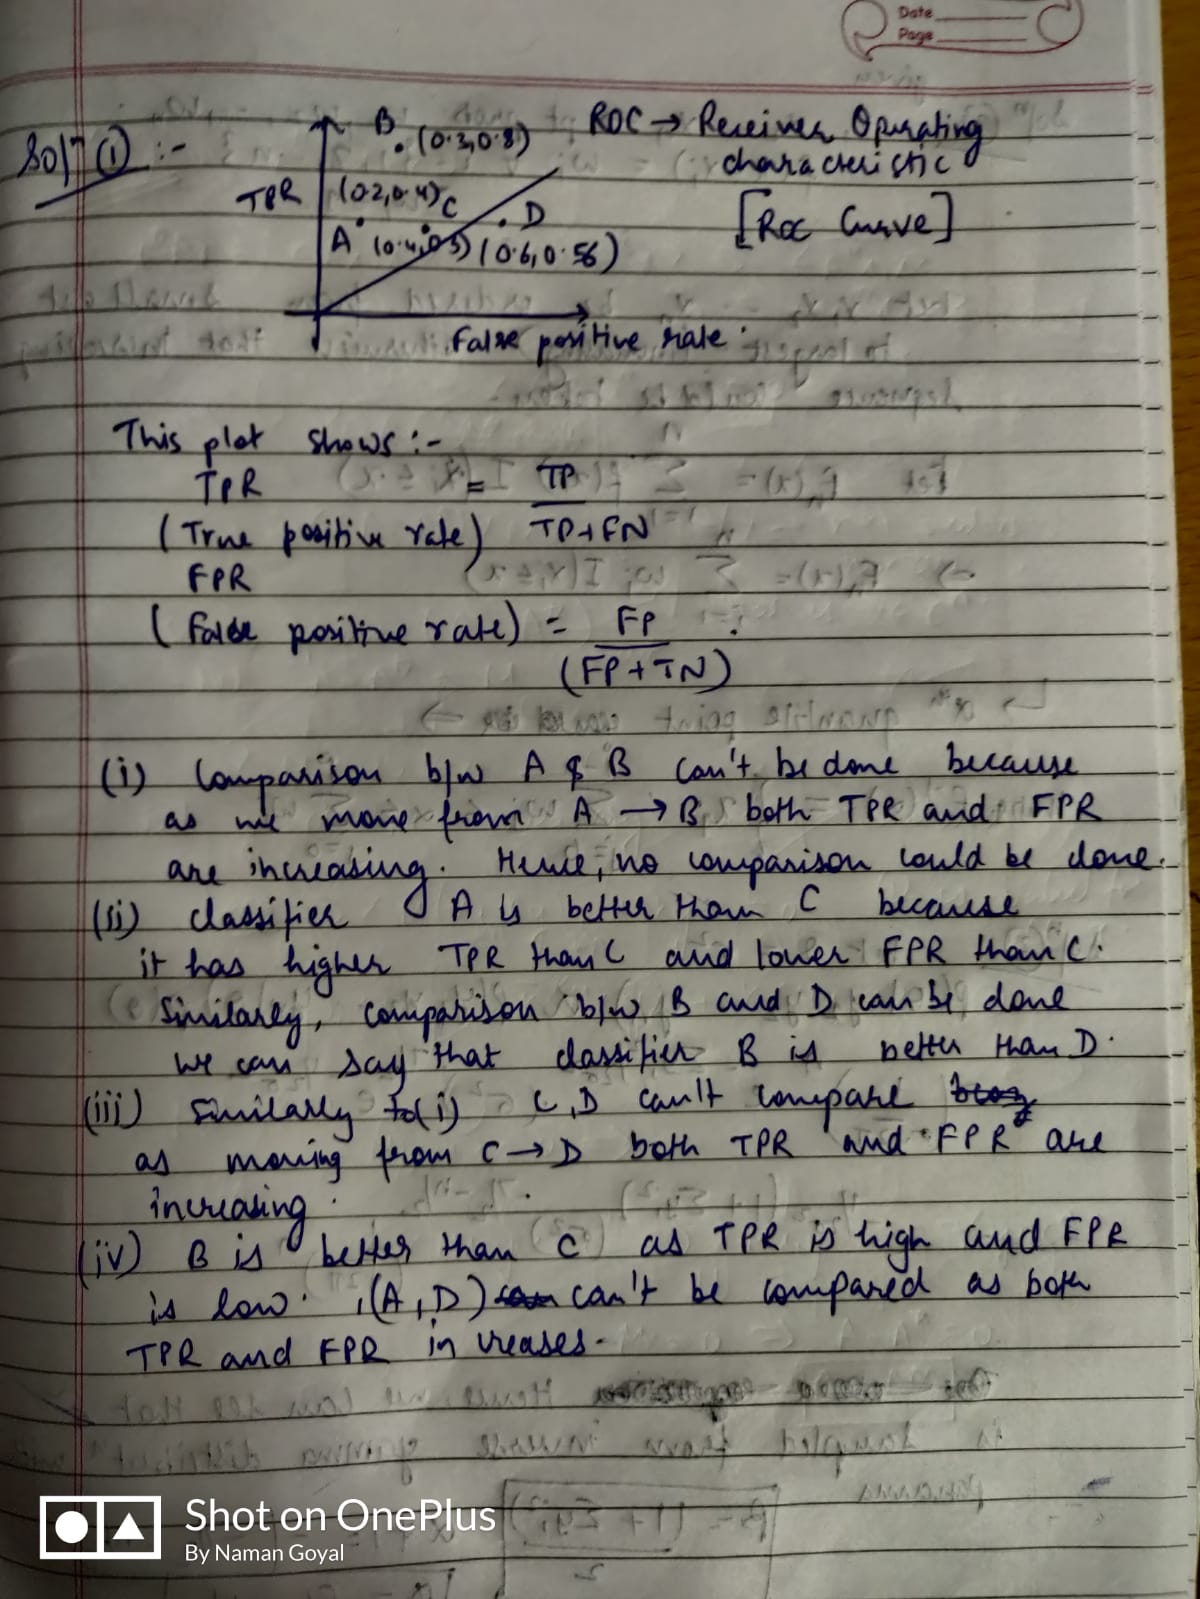 Date
Page
Solⁿ ① :-
B (0.3,0.8)
ROC → Receiver Operating
characteristic
[Roc Curve]
TPR
(0.2,0.4) C
D
A (0.4,0.3) (0.6,0.56)
False positive rate .
This plot shows :-
TPR = TP
(True positive rate) TP+FN
FPR
(False positive rate) = FP
(FP+TN)
(i) Comparison b/w A & B can't be done because
as we move from A → B, both TPR and FPR
are increasing. Hence, no comparison could be done.
(ii) classifier A is better than C because
it has higher TPR than C and lower FPR than C.
Similarly, comparison b/w B and D can be done
we can say that classifier B is better than D.
(iii) Similarly to (i) C,D can't compare
as moving from C → D both TPR and FPR are
increasing.
(iv) B is better than C as TPR is high and FPR
is low. , (A,D) can't be compared as both
TPR and FPR increases.
Shot on OnePlus
By Naman Goyal